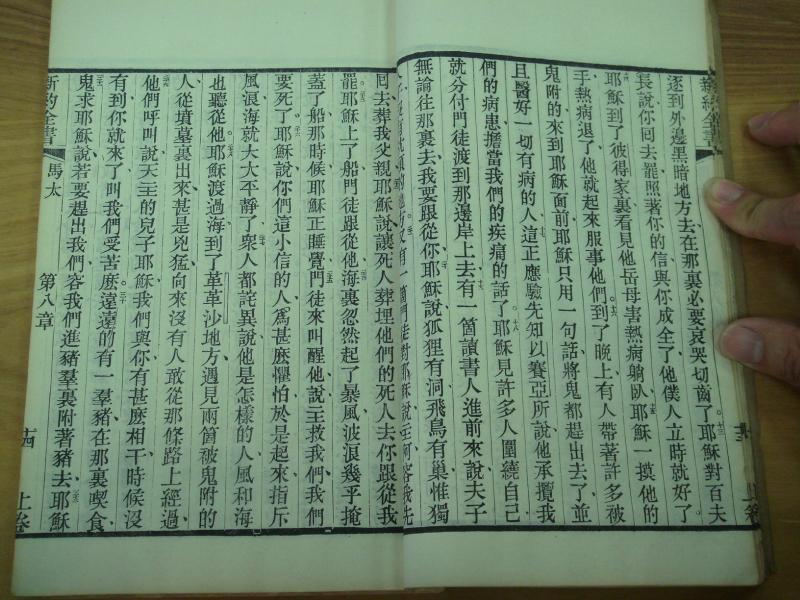 新約全書
逐到外邊黑暗地方去在那裏必要哀哭切齒了。十三耶穌對百夫
長說你回去罷照著你的信與你成全了他僕人立時就好了。
耶穌到了彼得家裏看見他岳母害熱病躺臥、十五耶穌一摸他的
手、熱病退了、他就起來服事他們。十六到了晚上、有人帶著許多被
鬼附的、來到耶穌面前、耶穌只用一句話、將鬼都趕出去了、並
且醫好一切有病的人、十七這正應驗先知以賽亞所說、他承攬我
們的病患、擔當我們的疾痛的話了。十八耶穌見許多人圍繞自己、
就分付門徒渡到那邊岸上去、十九有一箇讀書人進前來說、夫子
無論往那裏去、我要跟從你、二十耶穌說、狐狸有洞、飛鳥有巢、惟獨
又有一箇門徒對耶穌說、主阿、容我先
回去葬我父親、耶穌說、讓死人葬埋他們的死人、你跟從我
罷。耶穌上了船、門徒跟從他、海裏忽然起了暴風、波浪幾乎掩
蓋了船、那時候耶穌正睡覺、門徒來叫醒他說、主救我們、我們
要死了。耶穌說、你們這小信的人、爲甚麽懼怕、於是起來、指斥
風浪、海就大大平靜了、衆人都詫異說、他是怎樣的人、風和海
也聽從他。耶穌渡過海、到了革革沙地方、遇見兩箇被鬼附的
人、從墳墓裏出來、甚是兇猛、向來沒有人敢從那條路上經過、
他們呼叫說、天主的兒子耶穌、我們與你有甚麽相干、時候沒
有到、你就來了、叫我們受苦麽。遠遠的有一羣豬在那裏喫食、
鬼求耶穌說、若要趕出我們、容我們進豬羣裏附著豬去、耶穌
新約全書
馬太
第八章
十四
上卷